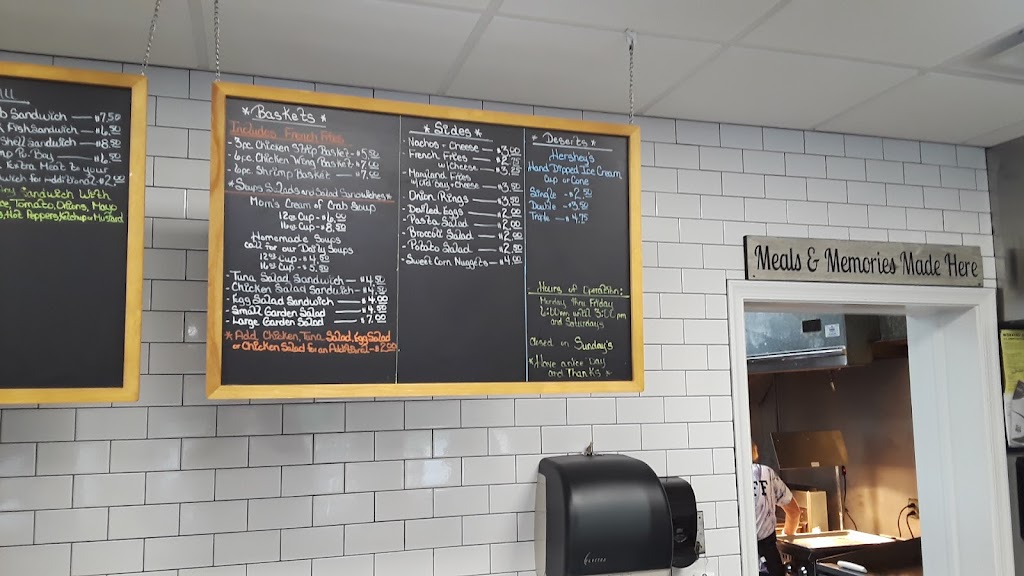 Sandwich — $7.50
Fish Sandwich
Shell Sandwich — $8.50
Extra Meat to your
Sandwich With
Tomato, Onions,
Hot Peppers, Ketchup or Mustard
* Baskets *
Includes French Fries
- 3pc Chicken Strip Basket - 5.50
- 6pc Chicken Wing Basket -
- 6pc Shrimp Basket — $7.50
* Soups Salads and Salad Sandwiches *
Mom's Cream of Crab Soup
12oz Cup - $6.50
16oz Cup - $8.50
Homemade Soups
call for our Daily Soups
12oz Cup - $4.50
16oz Cup - $5.50
- Tuna Salad Sandwich — $4.50
- Chicken Salad Sandwich - $4.50
- Egg Salad Sandwich — $4.00
- Small Garden Salad — $4.00
- Large Garden Salad — $7.00
* Add Chicken, Tuna Salad, Egg Salad
or Chicken Salad for an Additional - $2.50
* Sides *
- Nachos - Cheese
- French Fries
w/Cheese
- Maryland Fries
w/Old Bay + Cheese
- Onion Rings
- Deviled Eggs
- Pasta Salad
- Broccoli Salad
- Potato Salad
- Sweet Corn Nuggets — $4.00
* Deserts *
Hershey's
Hand Dipped Ice Cream
Cup or Cone
Single
Double
Triple - $4.75
Hours of Operation:
Monday thru Friday
until 3:00 pm
and Saturdays
Closed on Sunday's
* Have a nice Day
and Thanks *
Meals & Memories Made Here